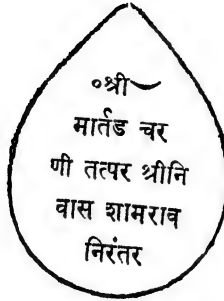 ०श्री
मार्तंड चर
णी तत्पर श्रीनि
वास शामराव
निरंतर